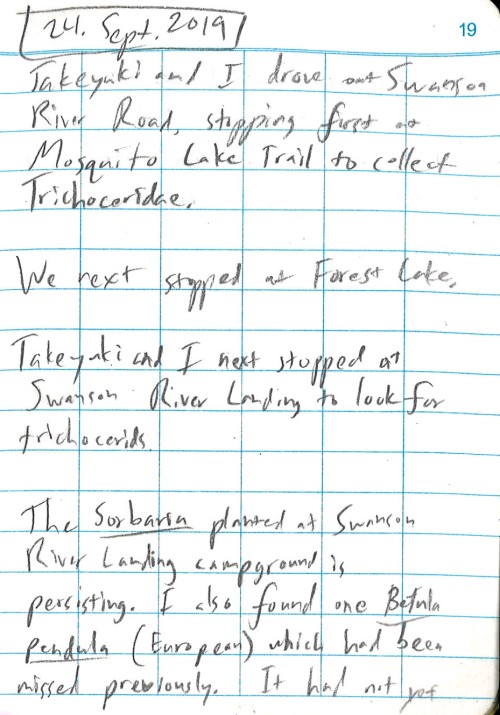 24. Sept. 2019
19
Takeyuki and I drove out Swanson
River Road, stopping first at
Mosquito Lake Trail to collect
Trichoceridae.
We next stopped at Forest Lake.
Takeyuki and I next stopped at
Swanson River Landing to look for
trichocerids.
The Sorbaria planted at Swanson
River Landing campground is
persisting. I also found one Betula
pendula (European) which had been
missed previously. It had not yet